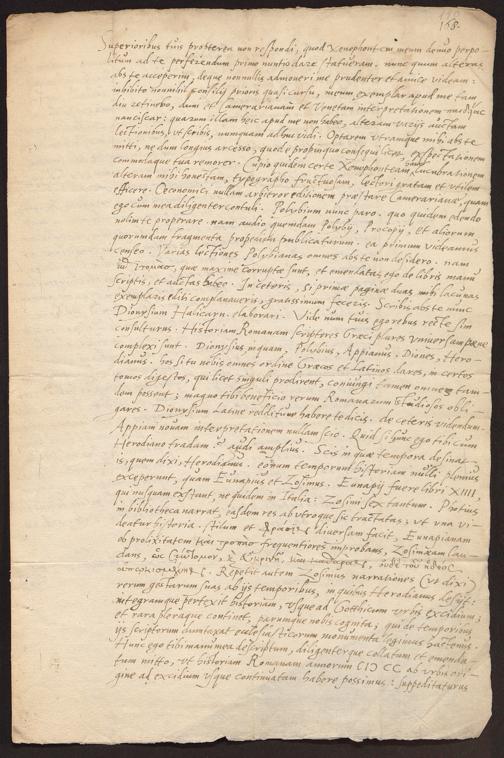 168.
Superioribus tuis propterea non respondi, quod Xenophontem meum denuo perpo-
litum ad te perferendum primo nuntio dare statueram. nunc quum alteras
abs te acceperim, deque nonnullis admoneri me prudenter et amice videam:
inhibito nonnihil consilij prioris quasi cursu, meum exemplar apud me tam
diu retinebo, dum et Camerarianam et Venetam interpretationem
nanciscar: quarum illam heic apud me non habeo, alteram varijs auctam
lectionibus, ut scribis, numquam adhuc vidi. Optarem utramque mihi abs te
mitti, ne dum longius arcesso, quod e propinquo consequi licet, exspectationem
commodaque tua remorer. Cupio quidem certe Xenophonteam hanc lucubrationem
alteram mihi honestam, typographo fructuosam, lectori gratam et utilem
efficere. Oeconomici nullam arbitror editionem praestare Camerarianae, quam
ego cum mea diligenter contuli. Polybium nunc paro. quo quidem edendo
nolim te properare. nam audio quaedam Polybij, Procopij, et aliorum
quorumdam fragmenta propediem publicatum. ea primum videamus
censeo. Varias lectiones Polybianas omnes abs te non desidero. nam
quae maxime corruptae sunt, et emendatas ego de libris manu
scriptis, et auctas habeo. In ceteris, si primae paginae duas mihi lacunas
exemplaris editi conplanaveris, gratissimum feceris. Scribis abs te nunc
Dionysium Halicarn. elaborari. Vide num tuis ego rebus recte sim
consulturus. Historiam Romanam scriptores Graeci plures universam paene
complexi sunt. Dionysius, inquam, Polybius, Appianus, Diones, Hero-
dianus. hos si tu nobis omnes ordine Graecos et Latinos dares, in certos
tomos digestos, qui licet singuli prodirent, coniungi tamen omnes tan-
dem possent; magno tibi beneficio rerum Romanarum studiosos obli-
gares. Dionysium Latine redditum habere te dicis. de ceteris videndum.
Appiani novam interpretationem nullam scio. Quid si hunc ego tibi cum
Herodiano tradam? audi amplius. Scis in quae tempora desinat
is, quem dixi, Herodianus. eorum temporum historiam nulli plenius
exceperunt, quam Eunapius et Zosimus. Eunapij fuere libri XIIII,
qui nusquam exstant, ne quidem in Italia: Zosimi sex tantum. Photius
in bibliotheca narrat, easdem res ab utroque sic tractatas, ut una vi-
deatur historia. stilum et φράσιν diversam facit, Eunapianam
ob prolixitatem frequentiores improbans, Zosimeam lau-
dans, ὡς σύντομον,
Repetit autem Zosimus narrationes (ut dixi)
rerum gestarum suas ab ijs temporibus, in quibus Herodianus desijt:
integramque pertexit historiam, usque ad Gotthicum urbis excidium:
et rara pleraque continet, parumque nobis cognita; qui de temporibus
ijs scriptorum dumtaxat ecclesiasticorum monumenta legimus hactenus.
Hunc ego tibi manu mea descriptum, diligenterque collatum et emenda-
tum mitto, ut historiam Romanam annorum CIↃ CC ab urbis ori-
gine ad excidium usque continuatam habere possimus: suppeditaturus